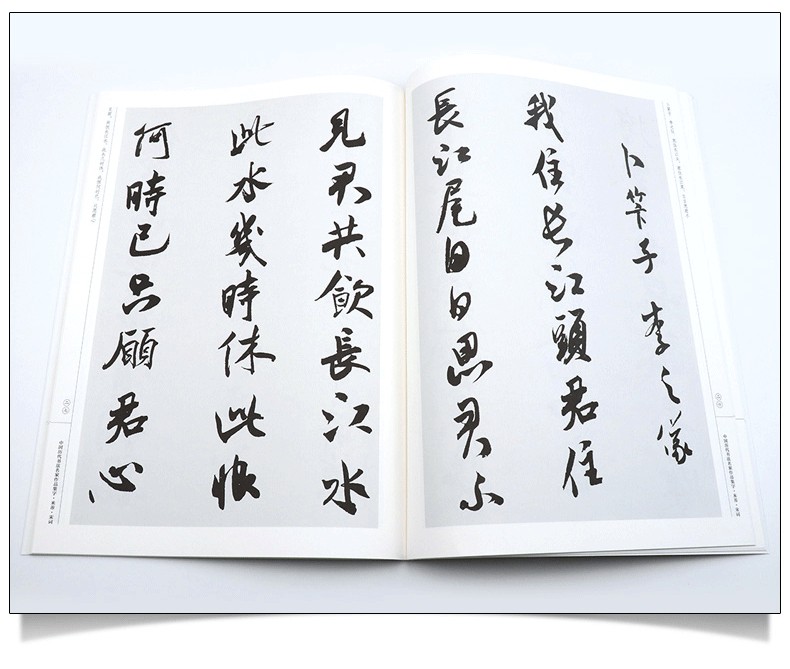 卜算子 李之儀
我住長江頭君住
長江尾日日思君不
見君共飲長江水
此水幾時休此恨
何時已只願君心
中国历代书法名家作品集字·米芾·宋词
中国历代书法名家作品集字·米芾·宋词